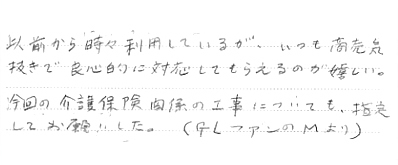 以前から時々利用しているが、いつも商売気
抜きで良心的に対応してもらえるのが嬉しい。
今回の介護保険関係の工事についても、指定
してお願いした。 (GLファンのMより)